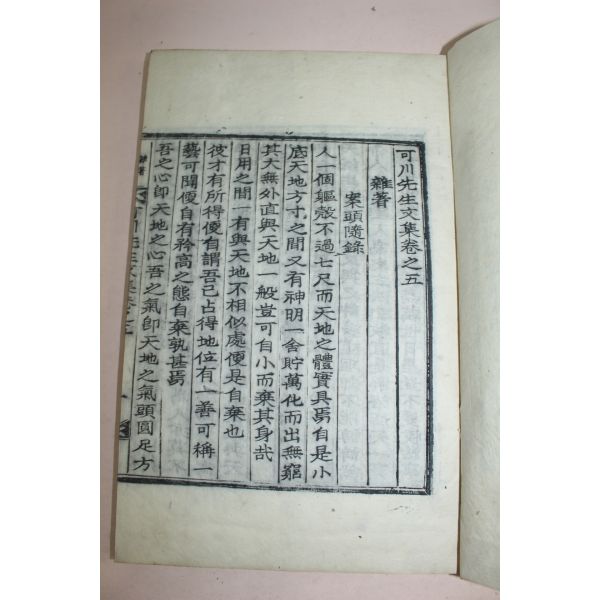 可川先生文集卷之五
雜著
案頭隨錄
人一個軀殼不過七尺而天地之體實具焉自是小
底天地方寸之間又有神明一舍貯萬化而出無窮
其大無外直與天地一般豈可自小而棄其身哉
日用之間一有與天地不相似處便是自棄也
彼才有所得便自謂吾已占得地位有一善可稱一
藝可聞便自有矜高之態自棄孰甚焉
吾之心卽天地之心吾之氣卽天地之氣頭圓足方